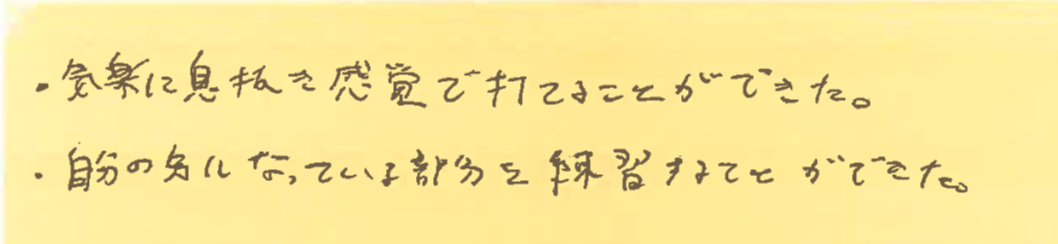 ・気楽に息抜き感覚で打てることができた。
・自分の気になっている部分を練習することができた。